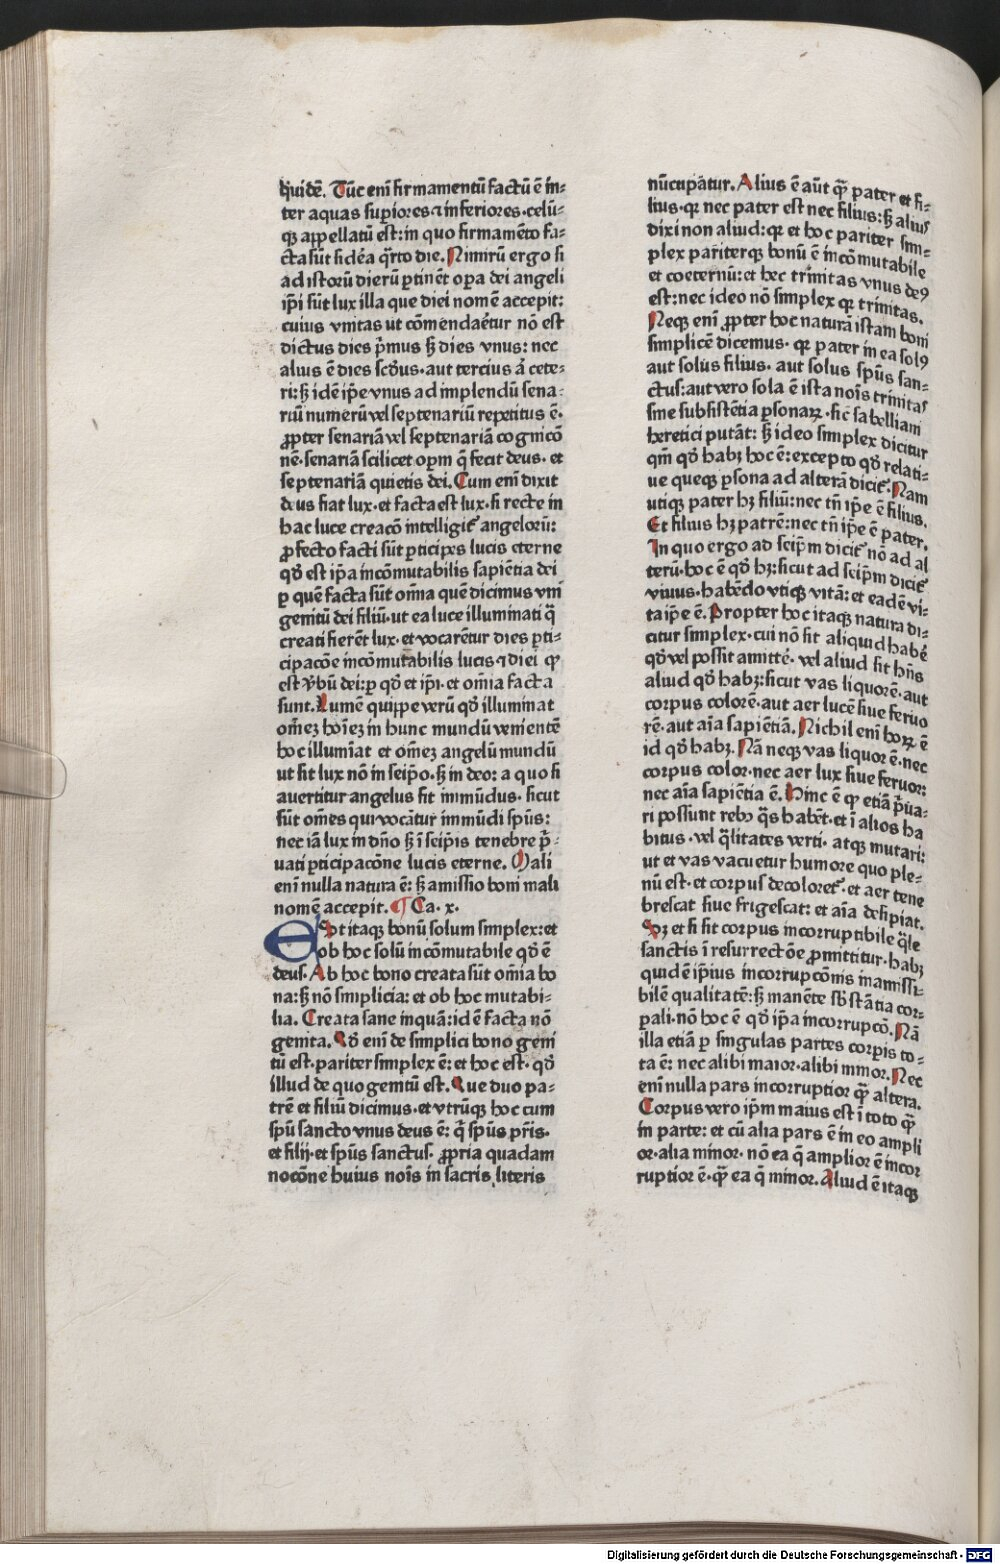 quidē. Tūc enī firmamentū factū ē in-
ter aquas supiores ⁊ inferiores·celū-
qꝫ appellatū est: in quo firmamēto fa-
cta sūt sidēa q̄rto die. Nimirū ergo si
ad istorū dierū ꝑtinēt opa dei angeli
ip̄i sūt lux illa que diei nomē accepit:
cuius vnitas ut cōmendaret̄ur nō est
dictus dies p̄mus sꝫ dies vnus: nec
alius ē dies scd̄us· aut tercius aꝉ cete-
ri: sꝫ idē ip̄e vnus ad implendū sena-
riū numerū vel septenariū repetitus ē·
ꝓpter senariā vel septenariā cognicō
nē· senariā scilicet opm q̄ fecit deus· et
septenariā quietis dei. Cum enī dixit
deus fiat lux· et facta est lux· si recte in
hac luce creacō intelligit᷑ angelorū:
ꝓfecto facti sūt ꝑticipes lucis eterne
qd̄ est ip̄a incōmutabilis sapiētia dei
ꝑ quē facta sūt om̄ia quē dicimus vni
genitū dei filiū· ut ea luce illuminati q̄
creati fierēt lux· et vocarētur dies ꝑti-
cipacōe incōmutabilis lucis ⁊ diei qꝫ
est v̄bū dei: ꝑ qd̄ et ip̄i· et om̄ia facta
sunt. Lumē quippe verū qd̄ illuminat
om̄eꝫ hoīeꝫ in hunc mundū venientē
hoc illumīat et om̄eꝫ angelū mundū
ut sit lux nō in seip̄o· sꝫ in deo: a quo si
auertitur angelus fit immūdus· sicut
sūt om̄es qui vocātur immūdi spūs:
nec iā lux in dn̄o sꝫ ī seip̄is tenebre p̄-
uati ꝑticipacōne lucis eterne. Mali
enī nulla natura ē: sꝫ amissio boni mali
nomē accepit. ¶ Ca· x·
Est itaqꝫ bonū solum simplex: et
ob hoc solū incōmutabile qd̄ ē
deus· Ab hoc bono creata sūt om̄ia bo
na: sꝫ nō simplicia: et ob hoc mutabi-
lia. Creata sane inquā: id ē facta nō
genita. Qd̄ enī de simplici bono geni
tū est· pariter simplex ē: et hoc est· qd̄
illud de quo genitū est. Que duo pa-
trē et filiū dicimus· et vtrūqꝫ hoc cum
spū sancto vnus deus ē: q̄ spūs pr̄is·
et filij· et spūs sanctus· ꝓpria quadam
nocōne huius nois̄ in sacris literis
nūcupatur. Alius ē aūt qꝫ pater et fi-
lius· qꝛ nec pater est nec filius: sꝫ alius
dixi non aliud: qꝛ et hoc pariter sim-
plex pariterqꝫ bonū ē incōmutabile
et coeternū: et hec trinitas vnus deꝰ
est: nec ideo nō simplex qꝛ trinitas.
Neqꝫ enī ꝓpter hoc naturā istam boni
simplicē dicemus· qꝛ pater in ea solꝰ
aut solus filius· aut solus spūs san-
ctus: aut vero sola ē ista nois̄ trinitas
sine subsistētia ꝑsonaꝝ· sic̄ sabelliani
heretici putāt: sꝫ ideo simplex dicitur
qm̄ qd̄ habꝫ hoc ē: excepto qd̄ relati-
ue queqꝫ ꝑsona ad alterā dicit᷑. Nam
utiqꝫ pater hꝫ filiū: nec tn̄ ip̄e ē filius.
Et filius hꝫ patrē: nec tn̄ ip̄e ē pater.
In quo ergo ad seip̄m dicit᷑ nō ad al
terū· hoc ē qd̄ hꝫ: sicut ad seip̄m dicit᷑
viuus· habēdo vtiqꝫ vitā: et eadē vi-
ta ip̄e ē. Propter hoc itaqꝫ natura di-
citur simplex· cui nō sit aliquid habē
qd̄ vel possit amittē· vel aliud sit hn̄s
aliud qd̄ habꝫ: sicut vas liquorē· aut
corpus colorē· aut aer lucē siue feruo
rē· aut aīa sapiētiā. Nichil enī hoꝝ ē
id qd̄ habꝫ. Nā neqꝫ vas liquor ē· nec
corpus color· nec aer lux siue feruor:
nec aīa sapiētia ē. Hinc ē qꝫ etiā p̄ua-
ri possunt rebꝫ q̄s habēt· et ī alios ha
bitus· vel q̄litates verti· atqꝫ mutari:
ut et vas vacuetur humore quo ple-
nū est· et corpus decoloret᷑· et aer tene
brescat siue frigescat: et aīa desipiat.
Sꝫ et si sit corpus incorruptibile q̄le
sanctis ī resurrectōe ꝓmittitur· habꝫ
quidē ip̄ius incorrupcōnis inamissi-
bilē qualitatē: sꝫ manēte sb̄stātia cor-
ꝑali· nō hoc ē qd̄ ip̄a incorrupcō. Nā
illa etiā ꝑ singulas partes corpis to-
ta ē: nec alibi maior· alibi minor. Nec
enī nulla pars incorruptior qꝫ altera.
Corpus vero ip̄m maius est ī toto qꝫ
in parte: et cū alia pars ē in eo ampli
or· alia minor· nō ea q̄ amplior ē incor
ruptior ē· qꝫ ea q̄ minor. Aliud ē itaqꝫ
Digitalisierung gefördert durch die Deutsche Forschungsgemeinschaft - DFG